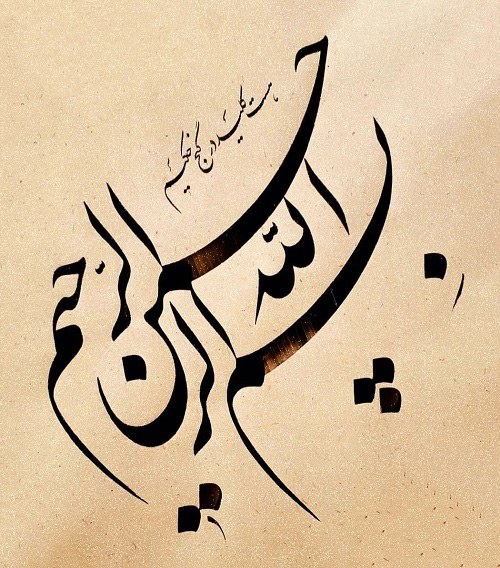 بسم الله الرحمن الرحیم
هست کلید در گنج حکیم